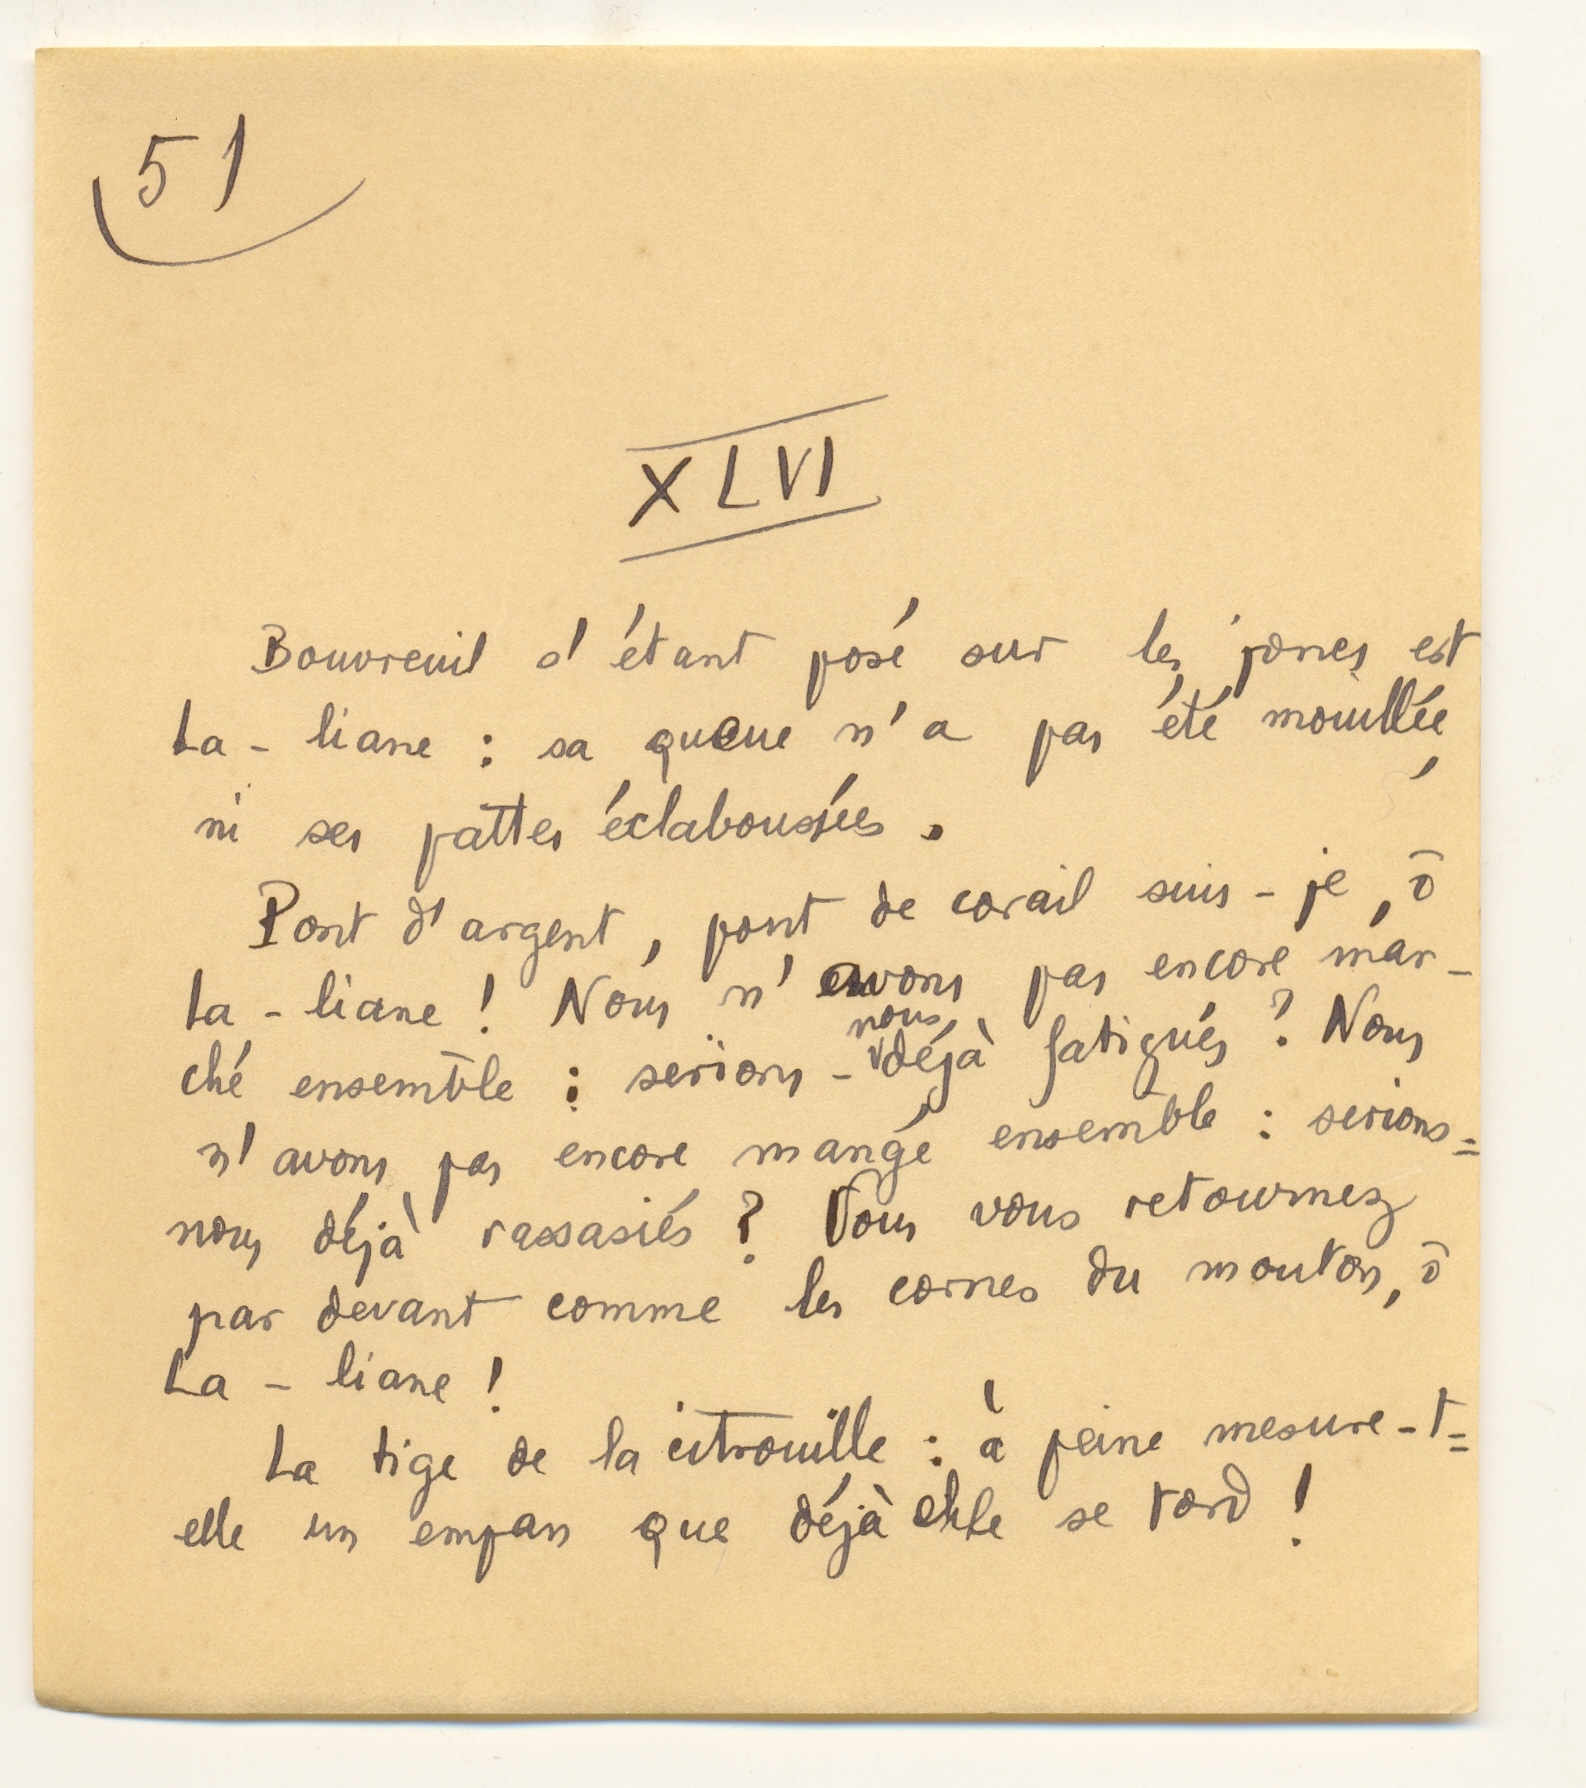 51
XLVI
Bouvreuil s'étant posé sur les joncs est
La-liane : sa queue n'a pas été mouillée,
ni ses pattes éclaboussées.
Pont d'argent, pont de corail suis-je, ô
La-liane ! Nous n'avons pas encore mar-
ché ensemble : serions-nous déjà fatigués ? Nous
n'avons pas encore mangé ensemble : serions=
nous déjà rassasiés ? Vous vous retournez
par devant comme les cornes du mouton, ô
La-liane !
La tige de la citrouille : à peine mesure-t=
elle un empan que déjà elle se tord !